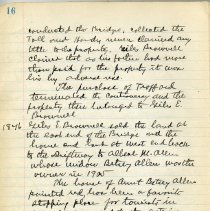 16
conducted the Bridge, collected the
Toll and Gordy never claimed any
title to the property, Giles Brownell
claimed that as his father had more
than paid for the property, it was
his by adverse
The purchase of Trafford
terminated the controversy and the
property then belonged to Giles E.
Brownell
1876 Giles E. Brownell sold the land at
the east end of the Bridge and the
house and land at West end down
to the Driftway to Albert M. Allen
whose widow Betsey Allen was the
owner in 1905
This house of Aunt Betsey Allen
painted red has been a favorite
stopping place for tourists in